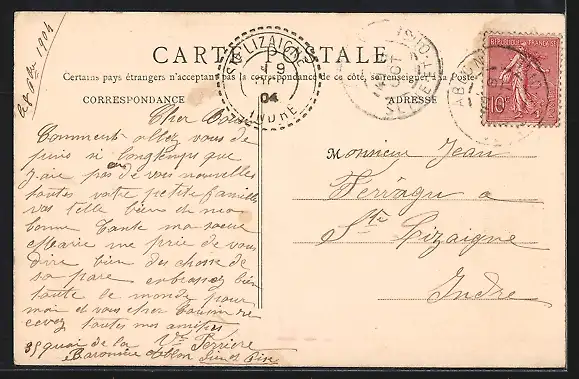 le 8 8bre 1904
CARTE POSTALE
Certains pays étrangers n'acceptant pas la correspondance de ce côté, se renseigner à la Poste
CORRESPONDANCE
ADRESSE
STE LIZAIGNE
9
04
INDRE
ABLON
REPUBLIQUE FRANÇAISE
10c
Cher Cousin
Comment allez vous de
puis si longtemps que
j'aie pas de vos nouvelles
toutes votre petite famille
vas telle bien de ma
bonne Tante ma soeur
Marie me prie de vous
dire bien des chosse de
sa pare enbrassez bien
toute le monde pour
moi et vous cher Cousin re
cevez toutes mes amitiés
Vve Ferriere
35 quai de la
Baronnie Ablon Seine et Oise
Monsieur Jean
Ferragu a
Ste Lizaigne
Indre